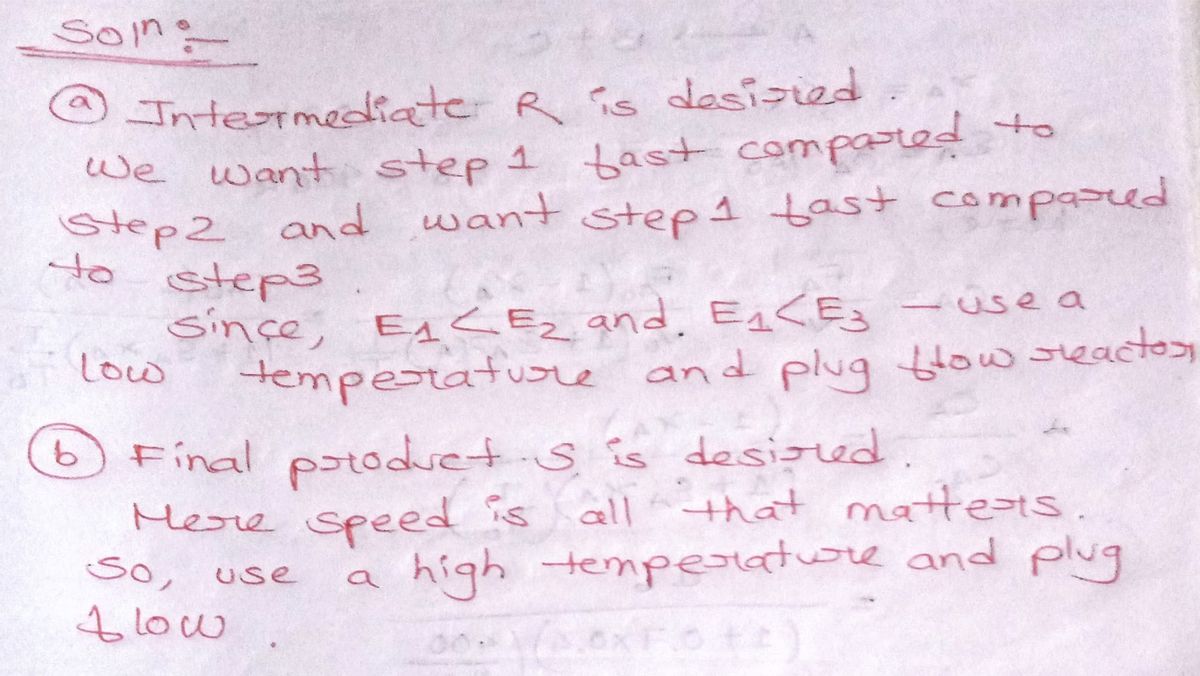 Soln :-
(a) Intermediate R is desired.
We want step 1 fast compared to
step2 and want step 1 fast compared
to step3.
Since, E1 < E2 and. E1 < E3 - use a
low temperature and plug flow reactor
(b) Final product S is desired.
Here speed is all that matters.
So, use a high temperature and plug
flow.